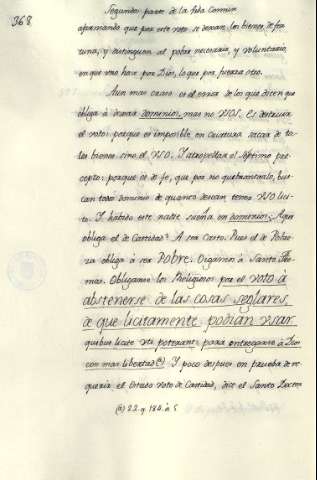 368
Segunda parte de la Vida Comun
afirmando que por este voto se dexan los bienes de for
tuna, y distinguen al pobre necesario, y voluntario,
en que uno hace por Dios, lo que por fuerza otro.
Aun mas craso es el error de los que dicen que
obliga à dexar dominio, mas no VSOS. Es destruir
el voto: porque es imposible en Criatura sacar de ta-
les bienes sino el VSO. Y atropellar el septimo pre-
cepto: porque es de fe, que por no quebrantarlo, bus-
can tanto dominio de quanto desean tener VSO lici-
to. Y habido este nadie sueña en dominio. Aqui
obliga el de Castidad? A ser Casto. Pues el de Pobre-
za obliga à ser Pobre. Oigamos à Santo Tho-
mas. Obliganse los Religiosos por el voto à
abstenerse de las cosas seglares,
de que licitamente podian vsar
quibus licite vti poterant, para entregarse à Dios
con mas libertad (a) Y poco despues en prueba de re-
querir el Estado Voto de Castidad, dice el Santo Doctor
(a) 22. q 186. à 5